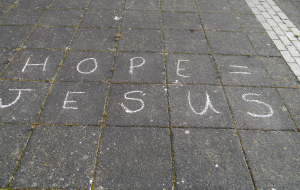 HOPE =
JESUS